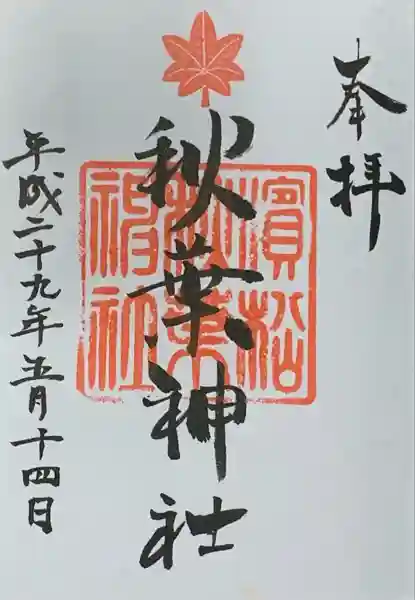 奉拝
秋葉神社
濱松
秋葉
神社
平成二十九年五月十四日